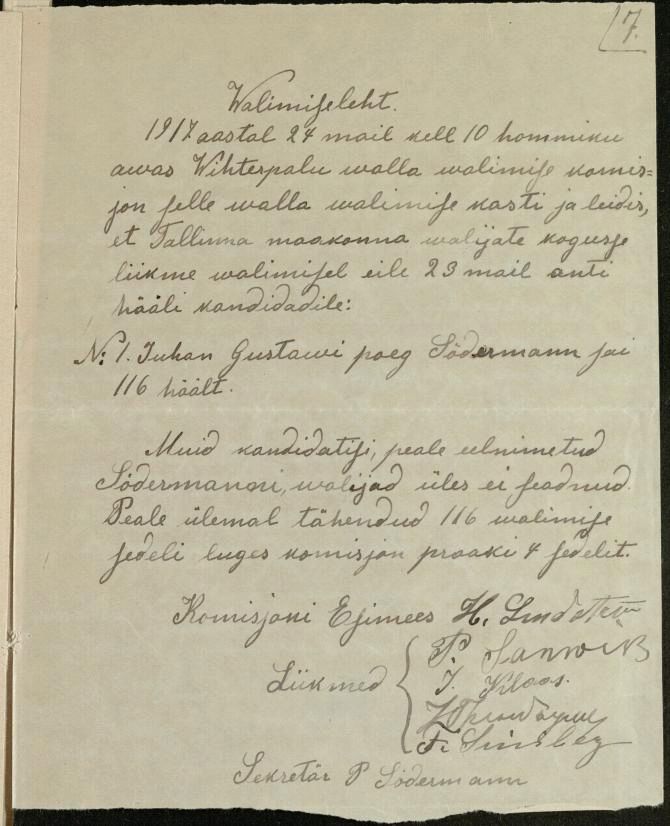 7.
Walimiseleht.
1917 aastal 24 mail kell 10 hommiku
awas Wihterpalu walla walimise komis=
jon selle walla walimise kasti ja leidis,
et Tallinna maakonna walijate kogusse
liikme walimisel eile 23 mail anti
hääli kandidadile:
N: 1. Juhan Gustawi poeg Södermann sai
116 häält.
Muid kandidatisi, peale eelnimetud
Södermanni, walijad üles ei seadnud.
Peale ülemal tähendud 116 walimise
sedeli luges komisjon praaki 4 sedelit.
Komisjoni Esimees H.
Liikmed P.
J. Klaas.
F.
Sekretär P Södermann